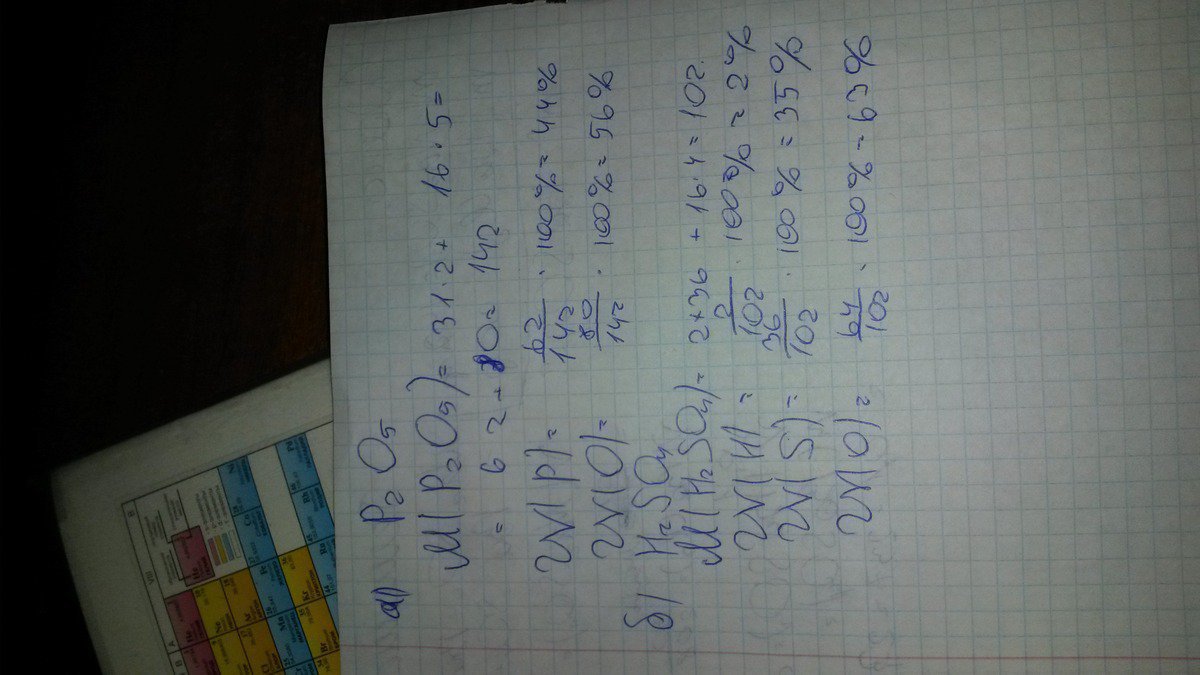 а) P₂O₅
M(P₂O₅)= 31·2+ 16·5=
= 62+80= 142
W(P)= 62/142 · 100%= 44%
W(O)= 80/142 · 100%= 56%
б) H₂SO₄
M(H₂SO₄)= 2+36 +16·4=102.
W(H)= 2/102 · 100%= 2%
W(S)= 36/102 · 100%= 35%
W(O)= 64/102 · 100%= 63%